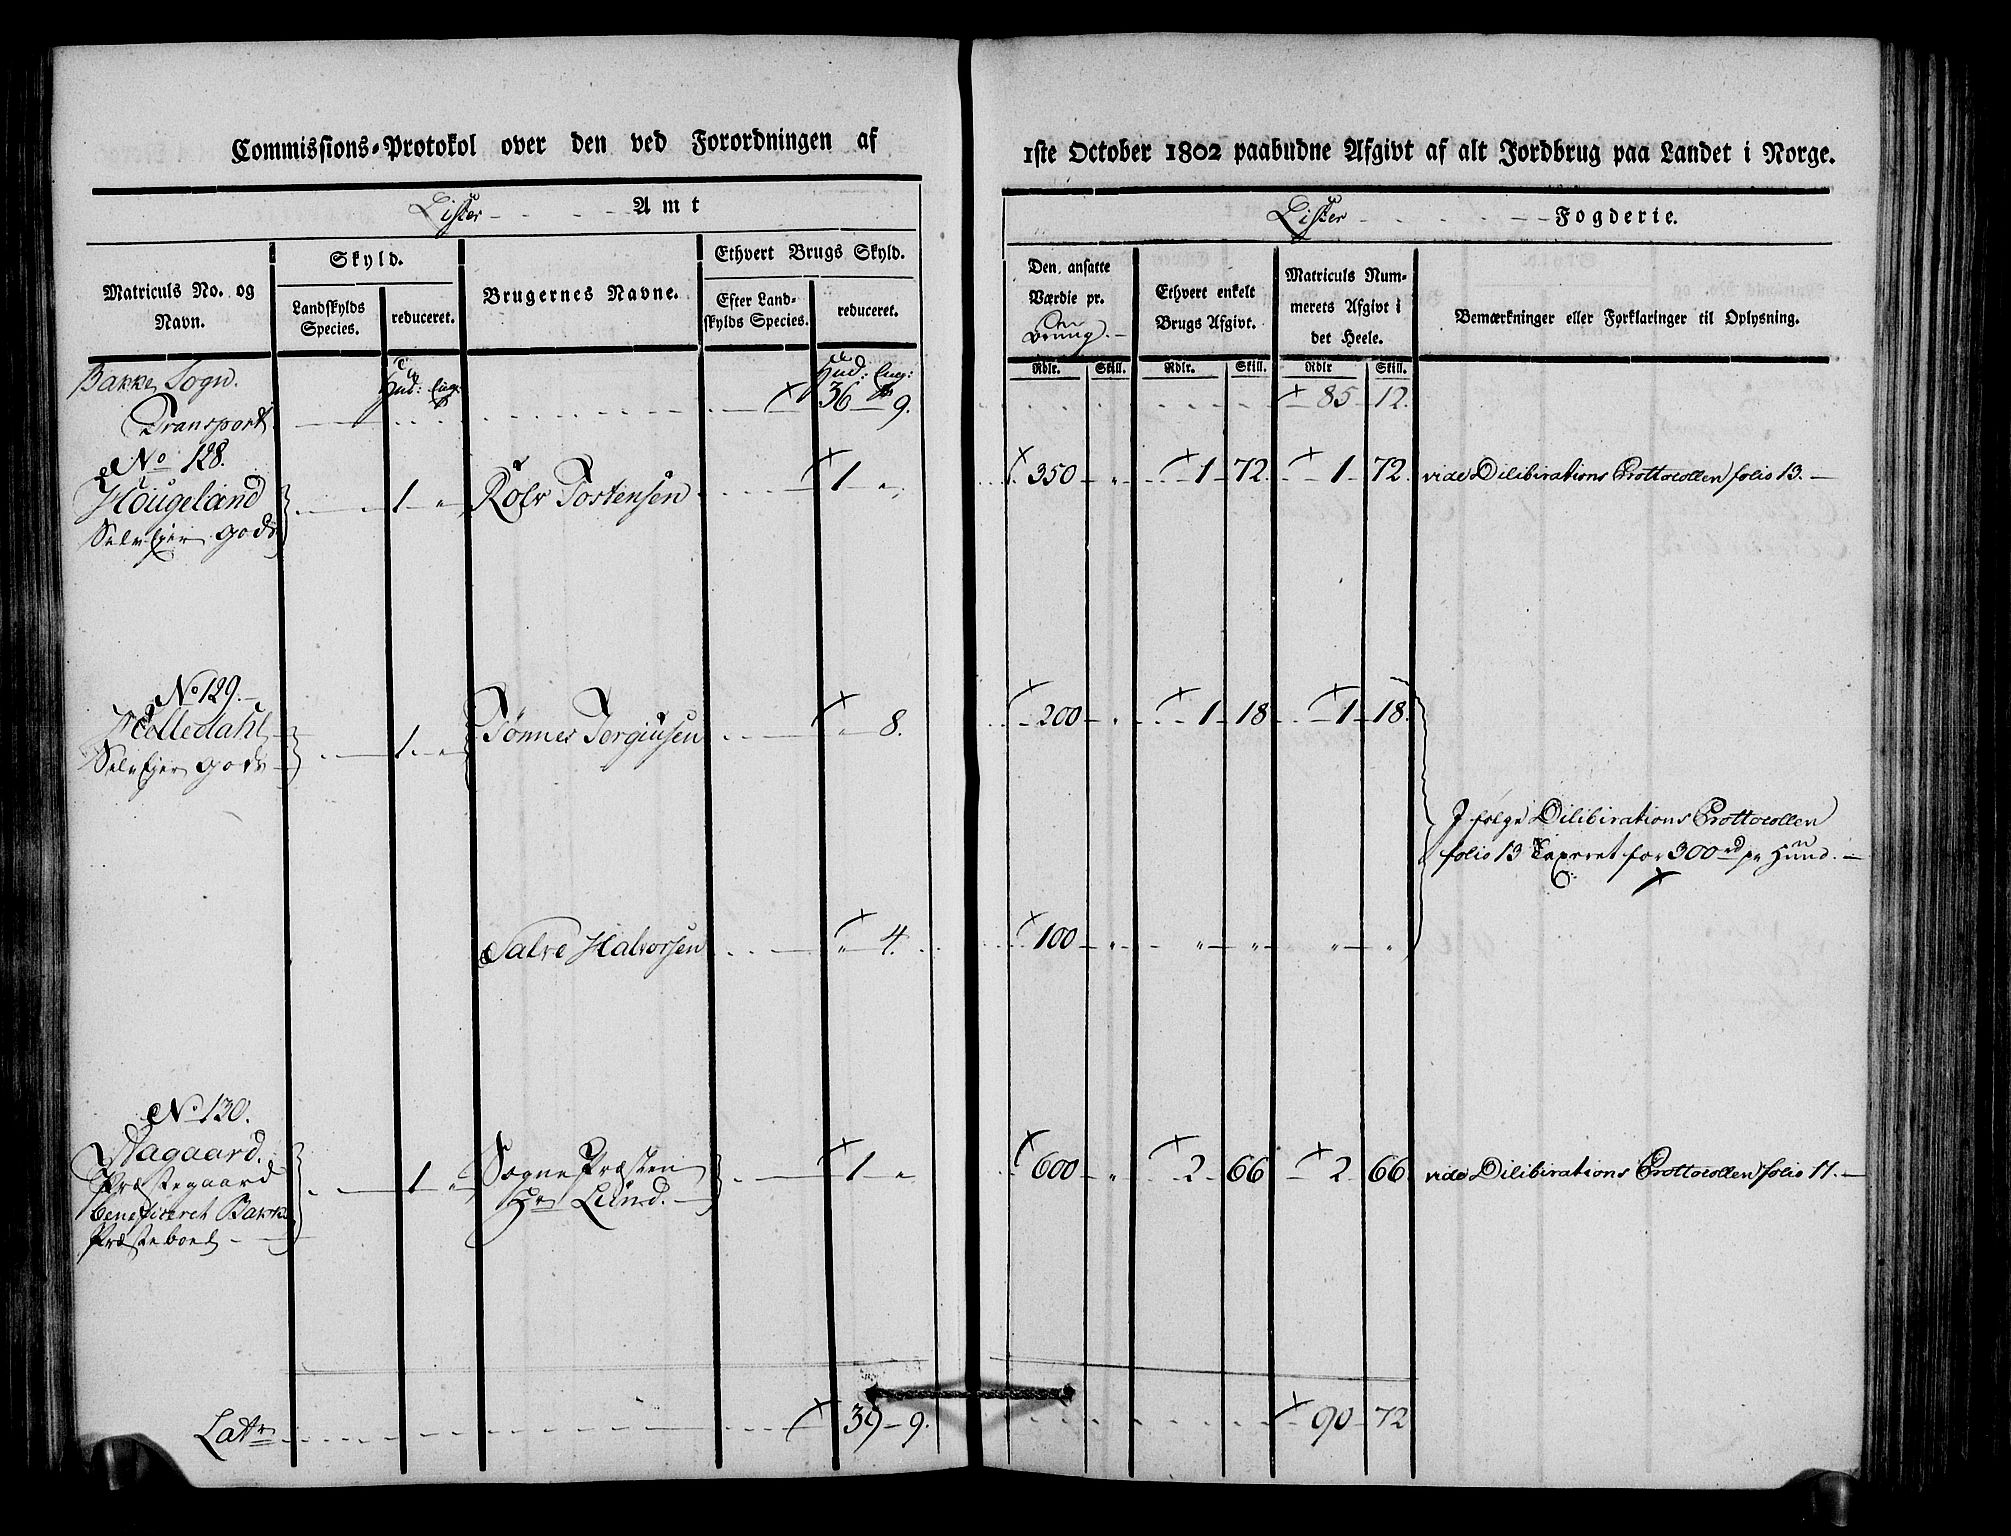 Commissions-Protokol over den ved Forordningen af
Lister Amt
Matriculs No. og Navn.
Skyld.
Landskylds Species.
reduceret.
Brugernes Navne.
Ethvert Brugs Skyld.
Efter Landskylds Species.
reduceret.
Bakke Sogn. Hud: Hud:
Transport 36 9.
No 128.
Hougeland 1 " Rolv Tostensen 1 "
Selvejer gods
No 129.
Tönnes Tergiusen 8.
Selvejer gods 1 "
Salve Halvorsen " 4.
No 130.
Præstegaard 1 " Sogne Præsten 1 "
beneficeret Bakke Hr Lund.
Præsteboel
Latr 39 9.
1ste October 1802 paabudne Afgivt af alt Jordbrug paa Landet i Norge.
Lister Fogderie.
Den ansatte Værdie pr.
Ethvert enkelt Brugs Afgivt.
Matriculs Nummerets Afgivt i det Heele.
Bemærkninger eller Forklaringer til Oplysning.
Rdlr. Skill. Rdlr. Skill. Rdlr Skill.
85 12.
350 " 1 72. 1 72. vide Dilibirations Prottocollen folio 13.
200 " 1 18 1 18.
I følge Dilibirations Prottocollen
folio 13 Taxeret for 300 rd pr Huud.
100 " " " " "
600 " 2 66 2 66 vide Dilibirations Prottocollen folio 11.
90 72